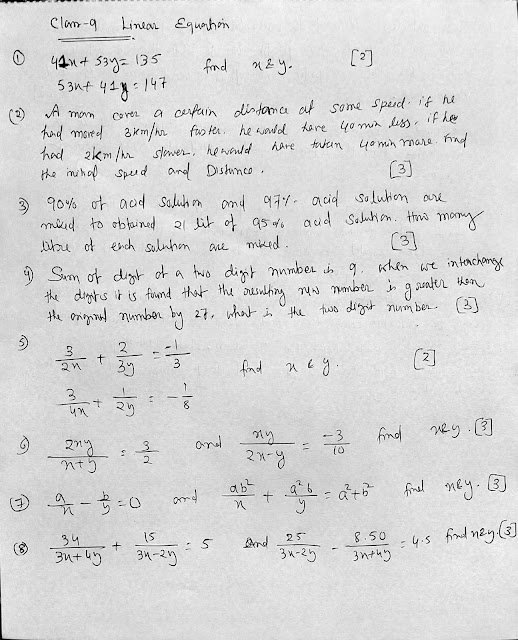 Class-9 Linear Equation
① 41x + 53y = 135 find x & y. [2]
53x + 41y = 147
(2) A man cover a certain distance at some speed. if he
had moved 3km/hr faster. he would have 40 min less. if he
had 2km/hr slower, he would have taken 40 min more. find
the initial speed and Distance. [3]
3) 90% of acid solution and 97% acid solution are
mixed to obtained 21 lit of 95% acid solution. How many
litre of each solution are mixed. [3]
4) Sum of digit of a two digit number is 9. when we interchange
the digits it is found that the resulting new number is greater than
the original number by 27. what is the two digit number. [3]
5) 3/2x + 2/3y = -1/3 find x & y. [2]
3/4x + 1/2y = -1/8
6) 2xy/x+y = 3/2 and xy/2x-y = -3/10 find x&y. [3]
⑦ a/x - b/y = 0 and ab²/x + a²b/y = a²+b² find x&y. [3]
⑧ 34/3x+4y + 15/3x-2y = 5 and 25/3x-2y - 8.50/3x+4y = 4.5 find x&y. [3]